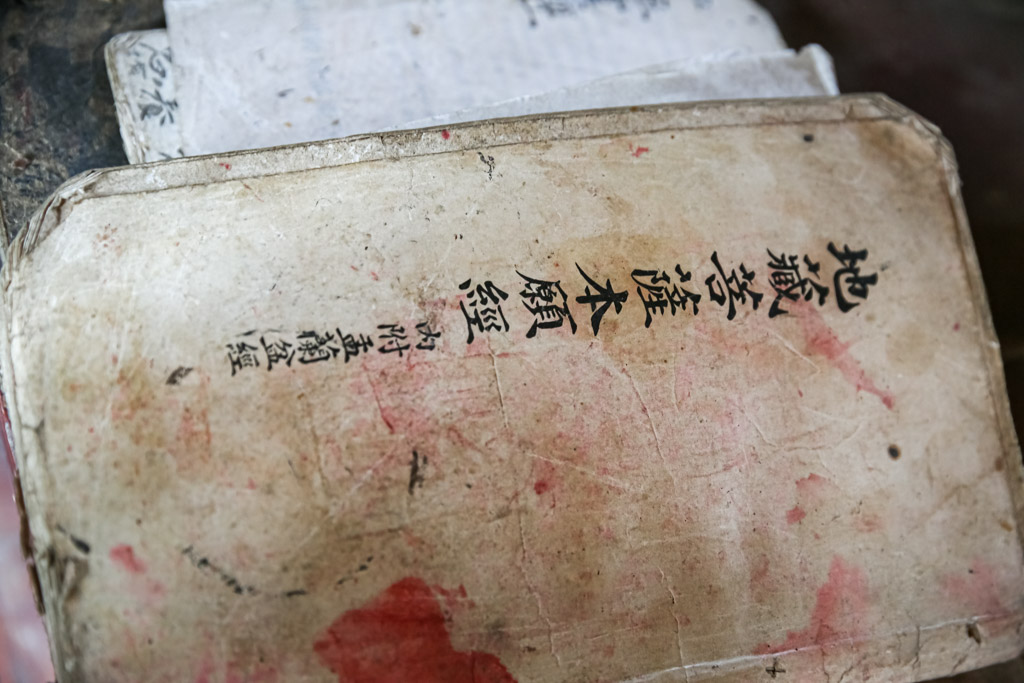 地藏菩薩本願經
內附盂蘭盆經